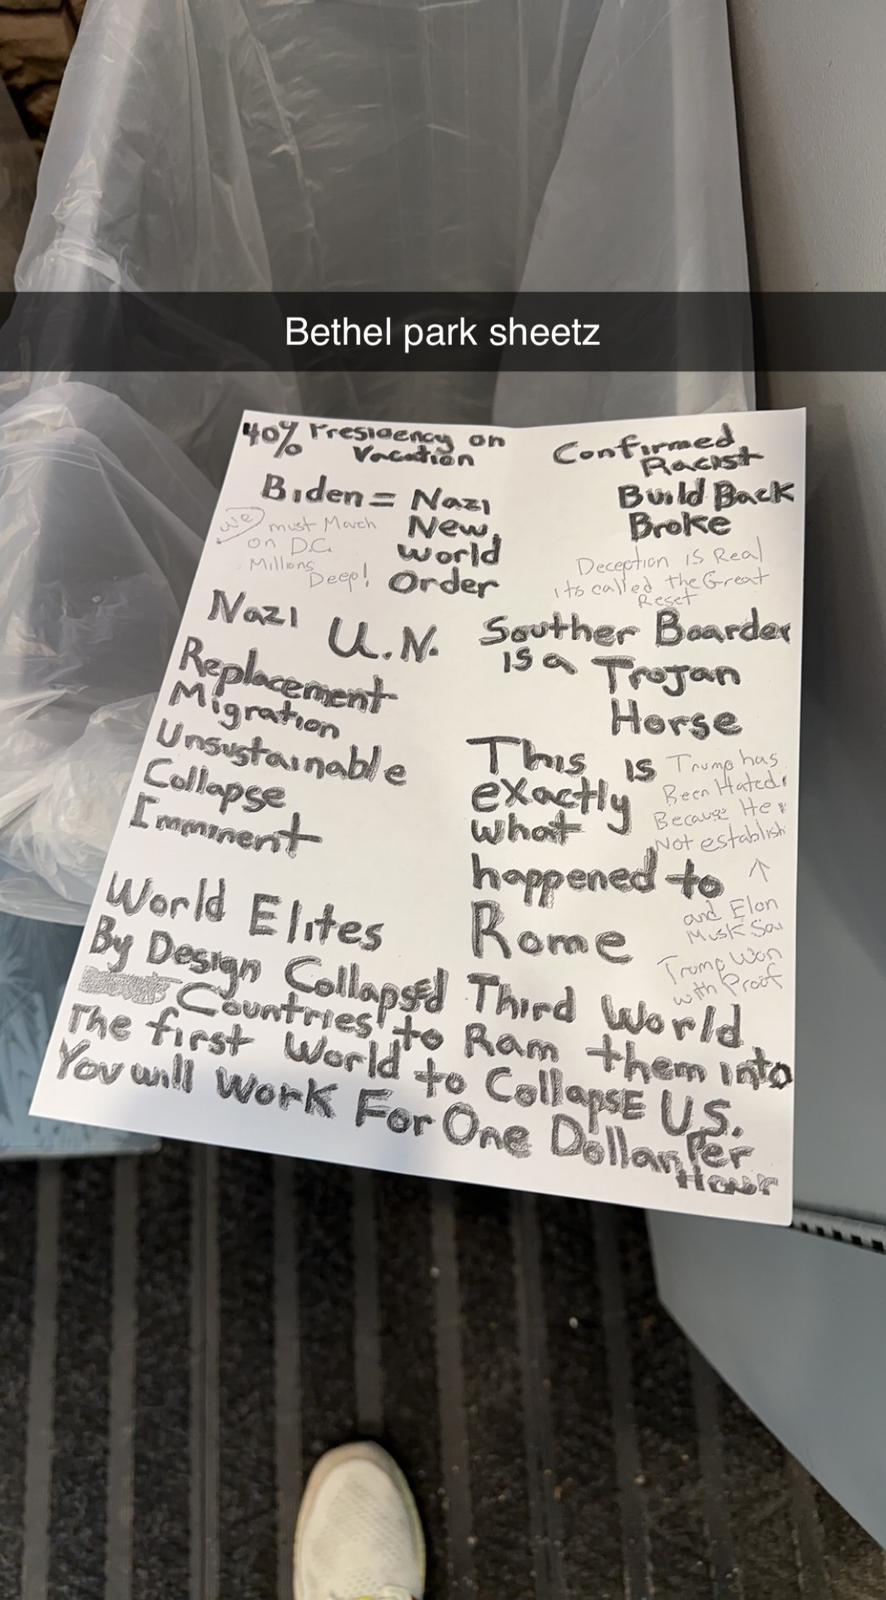 Bethel park sheetz
40% Presidency on
Vacation
Biden = Nazi
New
World
Order
We must March
on D.C.
Millions
Deep!
Confirmed
Racist
Build Back
Broke
Deception is Real
its called the Great
Reset
Nazi
U.N.
Replacement
Migration
Unsustainable
Collapse
Imminent
Souther Boarder
is a Trojan
Horse
This is
exactly
what
happened to
Rome
Trump has
Been Hated
Because He
Not establish
and Elon
Musk
Trump Won
with Proof
World Elites
By Design Collapsed Third World
Countries to Ram them into
The first World to CollapsE US.
You will Work For One Dollar Per
Hour